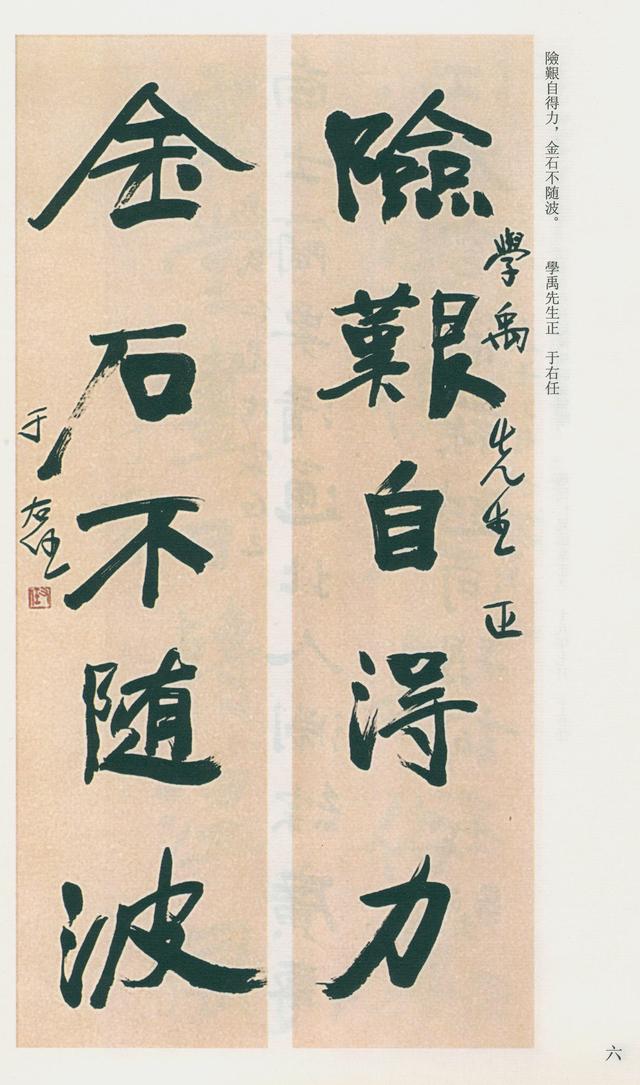 險艱自得力，金石不随波。　學禹先生正　于右任
學禹先生正
險艱自得力
金石不随波
于右任
六